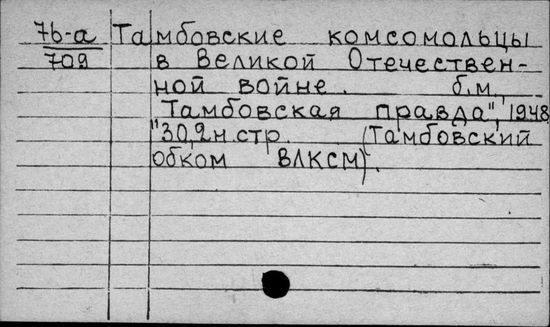 7б-а Тамбовские комсомольцы
709 в Великой Отечествен-
ной войне. б.м.,
"Тамбовская правда", 1948,
30,2н.стр. (Тамбовский
обком ВЛКСМ).